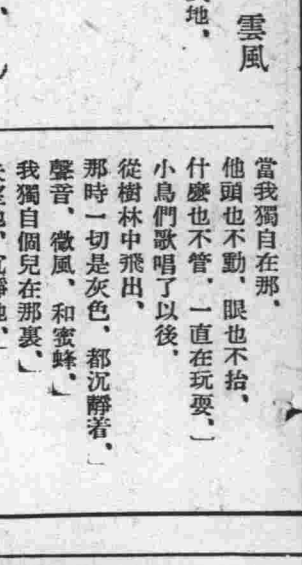 地、
雲風
當我獨自在那、
他頭也不動、眼也不抬、
什麼也不管、一直在玩耍、﹂
小鳥們歌唱了以後、
從樹林中飛出、
那時一切是灰色、都沉靜着、﹂
聲音、微風、和蜜蜂、﹂
我獨自個兒在那裏、﹂